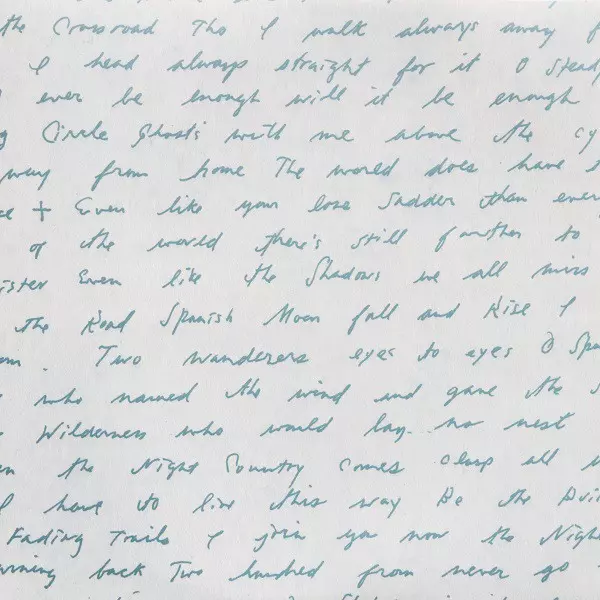 the Crossroad Tho I walk always away f
I head always straight for it O Stead
ever be enough will it be enough
g Circle Ghosts with me above the cy
way from home The world does have
ce + Even like your loss Sadder than ever
of the world there's still further to
ister Even like the Shadows we all miss
the Road Spanish Moon fall and Rise I
om. Two wanderers eyes to eyes O Spa
who named the wind and gave the S
Wilderness who would lay no nest
en the Night Country Comes all
I have to live this way Be the
Fading Trails I join you now the Nigh
urning back Two hundred from never go